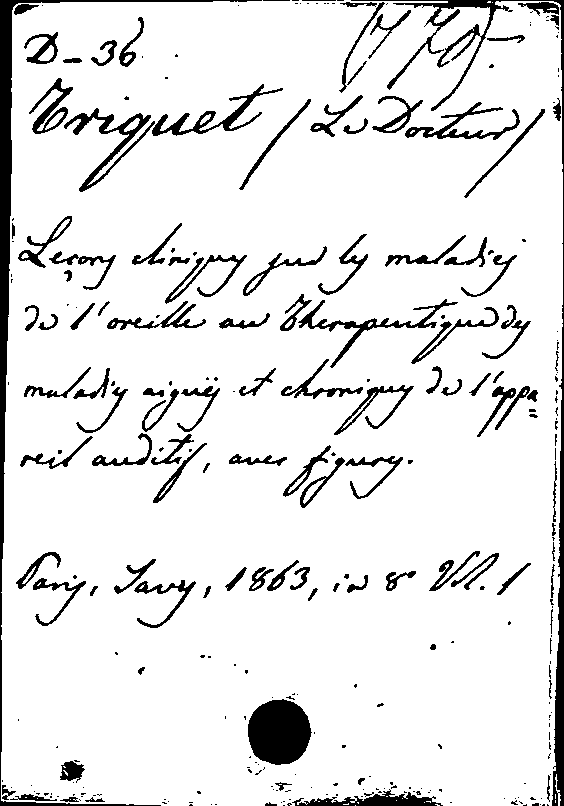 D-36 (770).
Triquet / Le Docteur /
Leçons cliniques sur les maladies
de l'oreille ou Thérapeutique des
maladies aiguës et chroniques de l'appa=
reil auditif, avec figures.
Paris, Savy, 1863, in 8° Vol. 1